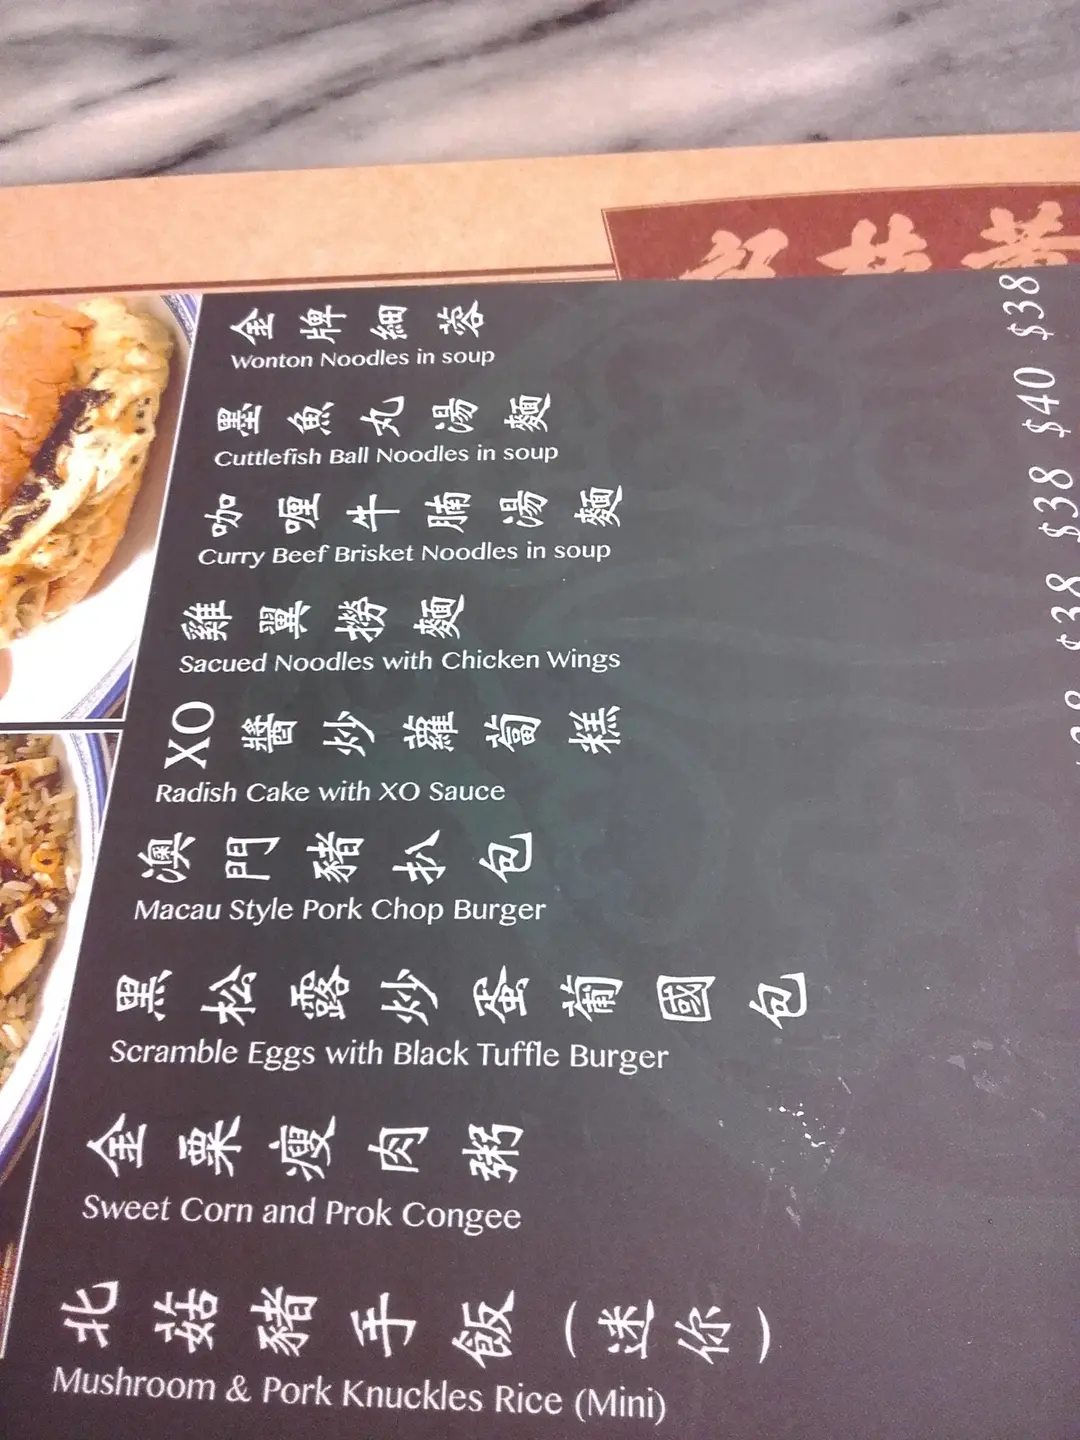 金牌細蓉 $38
Wonton Noodles in soup
墨魚丸湯麵 $40
Cuttlefish Ball Noodles in soup
咖喱牛腩湯麵 $38
Curry Beef Brisket Noodles in soup
雞翼撈麵 $38
Sacued Noodles with Chicken Wings
XO醬炒蘿蔔糕
Radish Cake with XO Sauce
澳門豬扒包
Macau Style Pork Chop Burger
黑松露炒蛋葡國包
Scramble Eggs with Black Tuffle Burger
金粟瘦肉粥
Sweet Corn and Prok Congee
北菇豬手飯（迷你）
Mushroom & Pork Knuckles Rice (Mini)